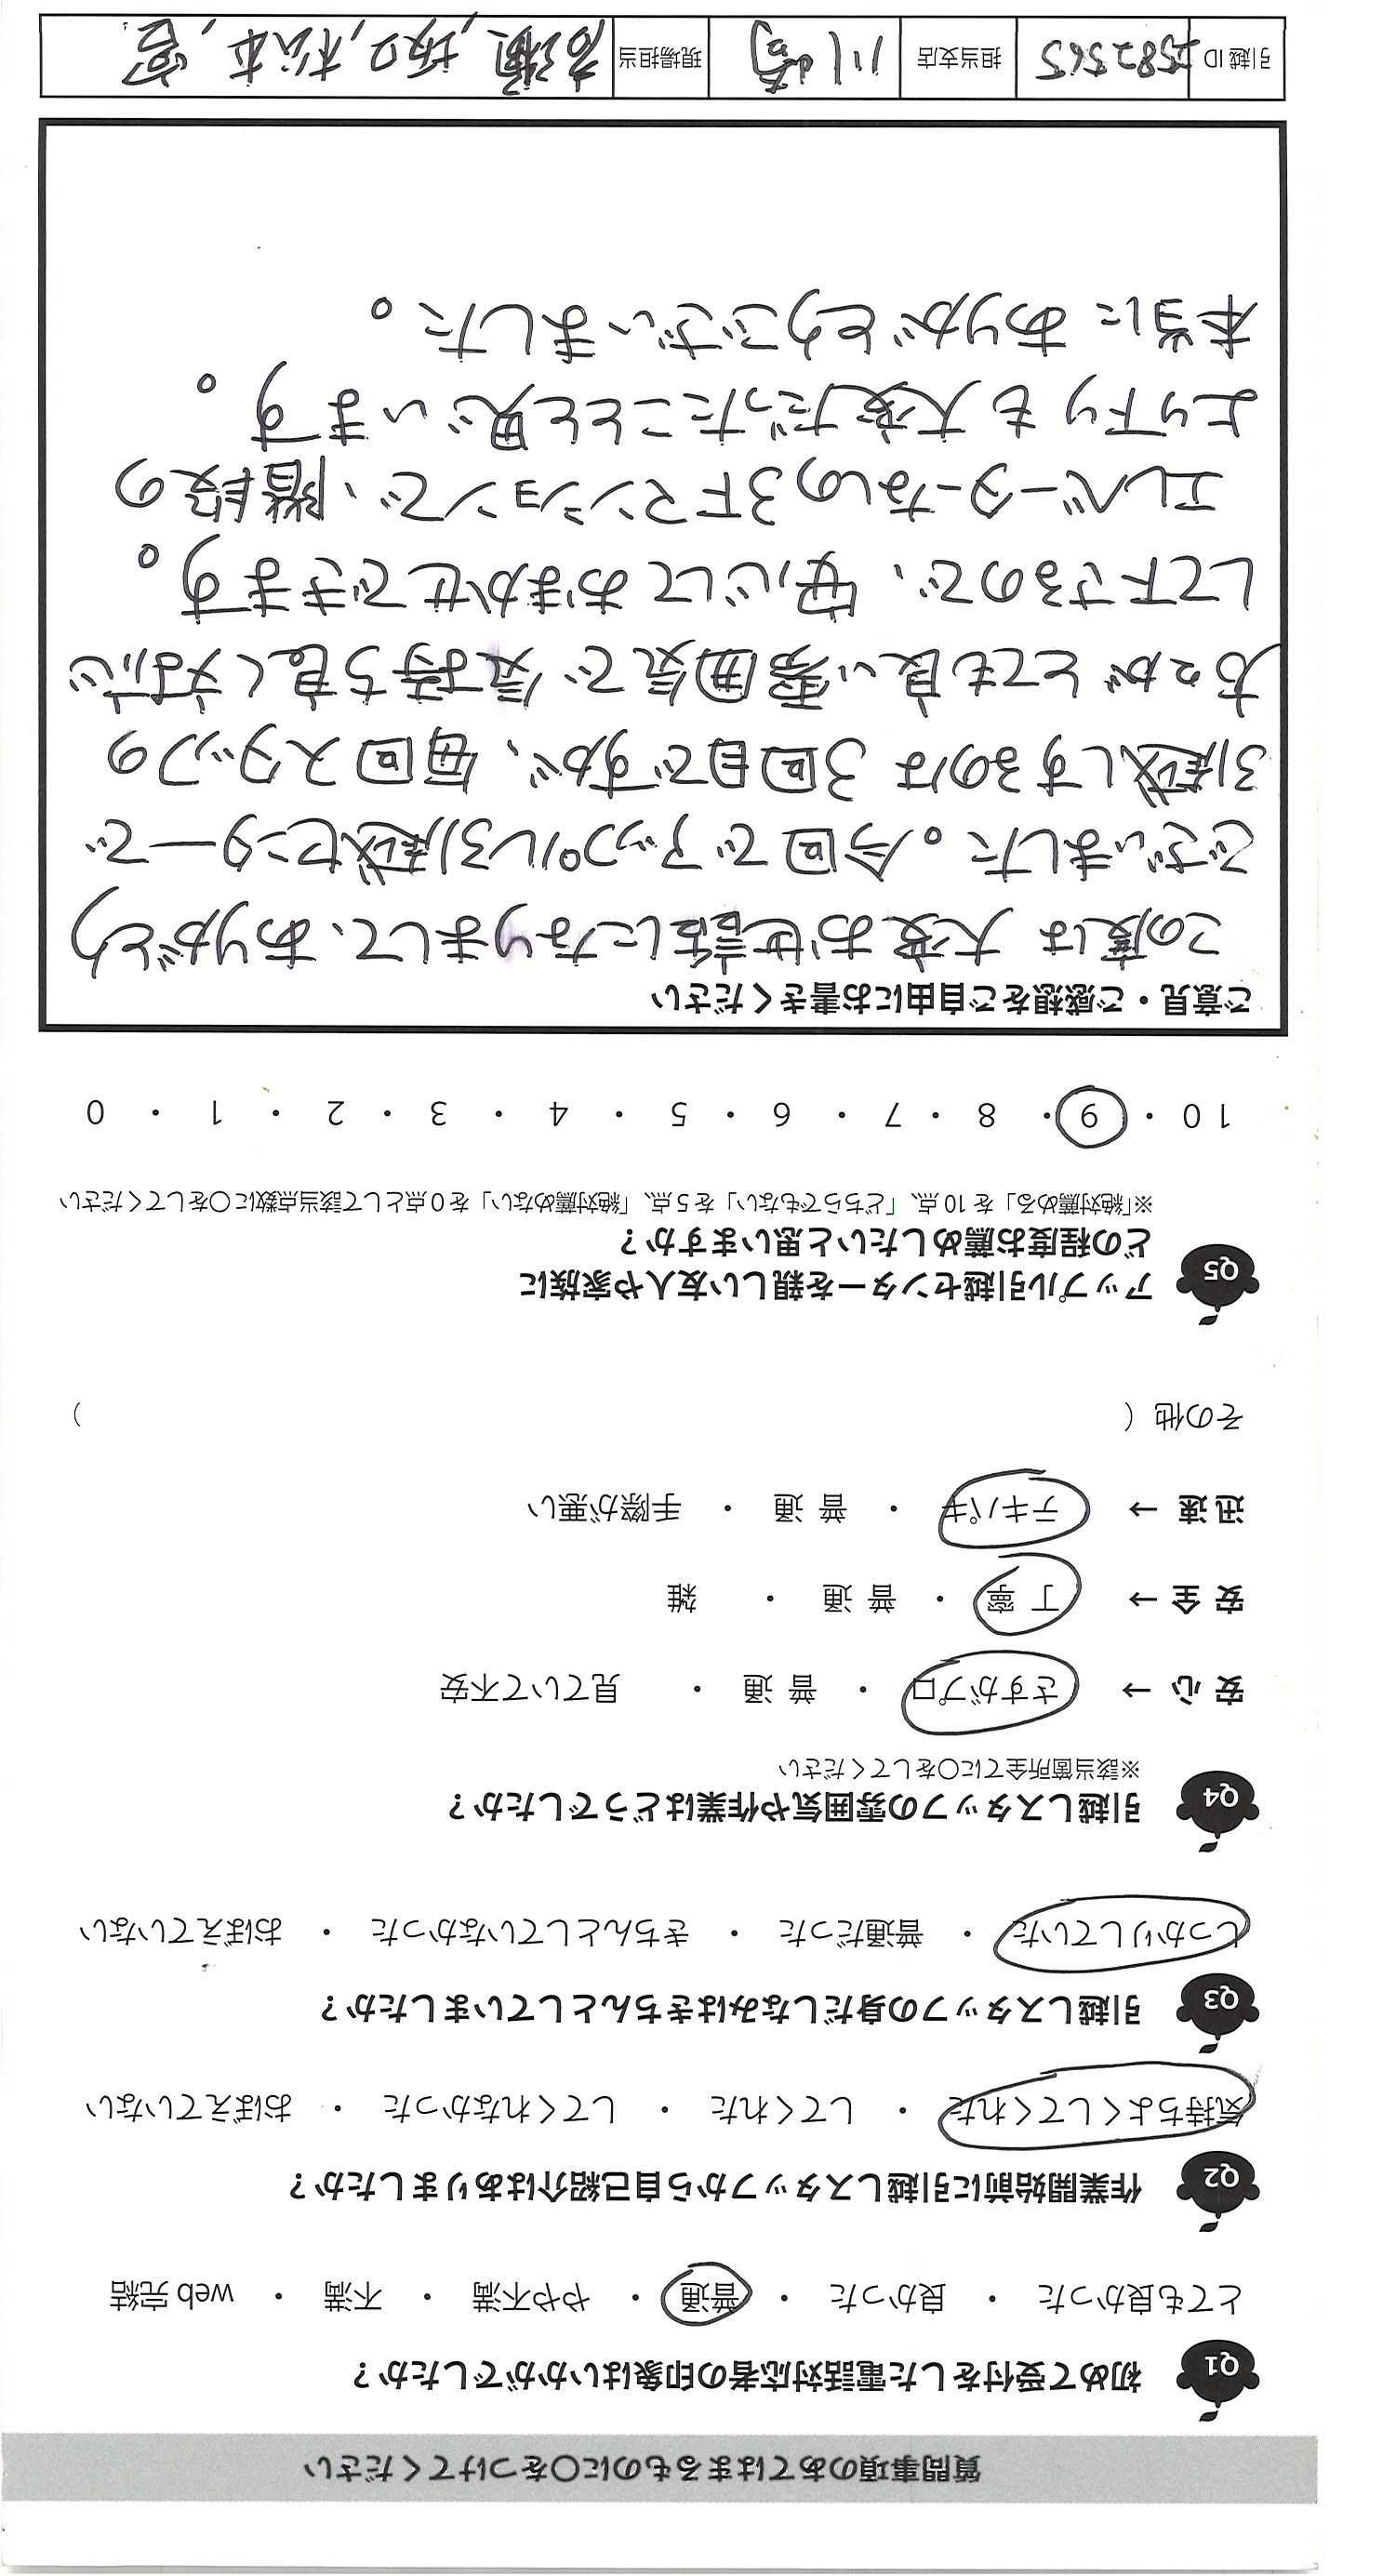 質問事項のあてはまるものに○をつけてください
Q1 初めて受付をした電話対応者の印象はいかがでしたか？
とても良かった ・ 良かった ・ 普通 ・ やや不満 ・ 不満 ・ web 完結
Q2 作業開始前に引越しスタッフから自己紹介はありましたか？
気持ちよくしてくれた ・ してくれた ・ してくれなかった ・ おぼえていない
Q3 引越しスタッフの身だしなみはきちんとしていましたか？
しっかりしていた ・ 普通だった ・ きちんとしていなかった ・ おぼえていない
Q4 引越しスタッフの雰囲気や作業はどうでしたか？
※該当箇所全てに○をしてください
安心 → さすがプロ ・ 普通 ・ 見ていて不安
安全 → 丁寧 ・ 普通 ・ 雑
迅速 → テキパキ ・ 普通 ・ 手際が悪い
その他（ ）
Q5 アップル引越センターを親しい友人や家族に
どの程度お薦めしたいと思いますか？
※「絶対薦める」を 10 点、「どちらでもない」を 5 点、「絶対薦めない」を 0 点として該当点数に○をしてください
10 ・ 9 ・ 8 ・ 7 ・ 6 ・ 5 ・ 4 ・ 3 ・ 2 ・ 1 ・ 0
ご意見・ご感想をご自由にお書きください
この度は 大変お世話になりまして、ありがとう
ございました。今回でアップル引越センターで
引越しするのは 3回目ですが、毎回スタッフの
方々がとても良い雰囲気で気持ち良く対応
して下さるので、安心しておまかせできます。
エレベーターなしの3Fマンションで、階段の
上り下りも大変だったことと思います。
本当に ありがとうございました。
引越 ID 2582565 担当支店 川崎 現場担当 高瀬, 坂口, 松本, 宮